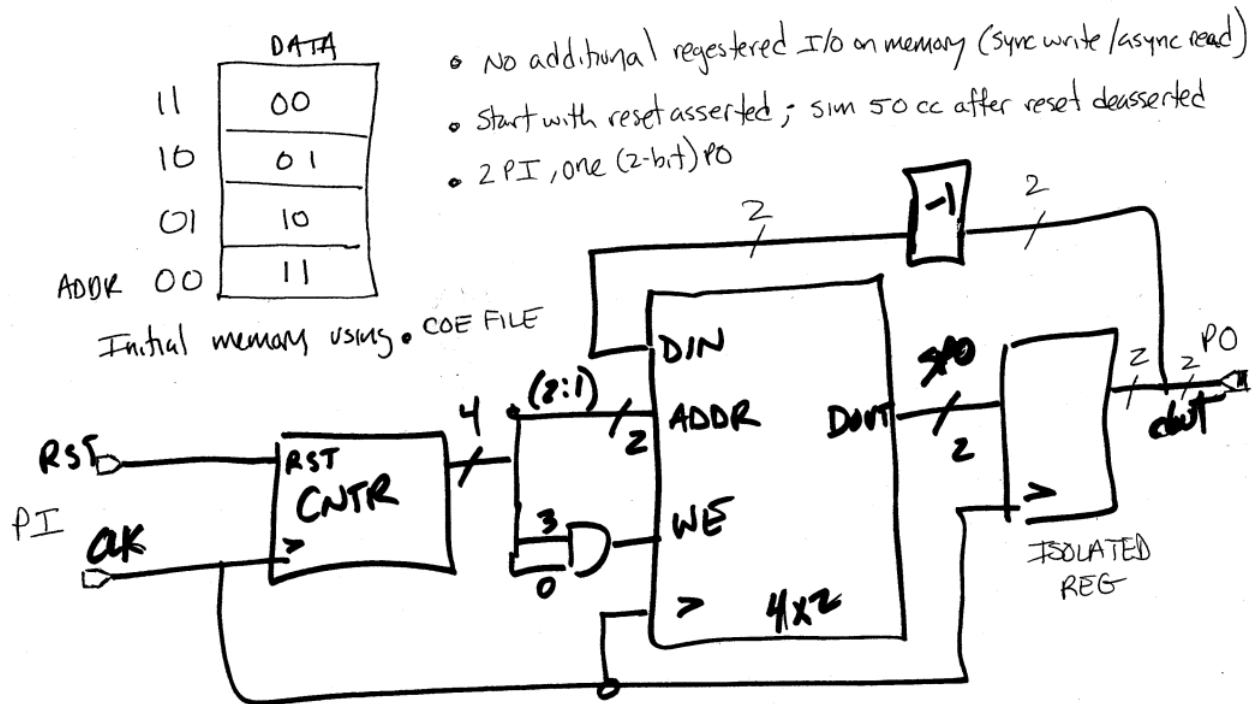 DATA
11 00
10 01
01 10
ADDR 00 11
Initial memory using .COE FILE
• No additional regestered I/O on memory (sync write/async read)
• Start with reset asserted; sim 50 cc after reset deasserted
• 2 PI, one (2-bit) PO
2
-1
2
DIN
(2:1)
2
ADDR
DOUT
SPO
2
2
2
PO
dout
4
RST
RST
CNTR
>
PI
CLK
3
0
WE
>
4x2
>
ISOLATED
REG